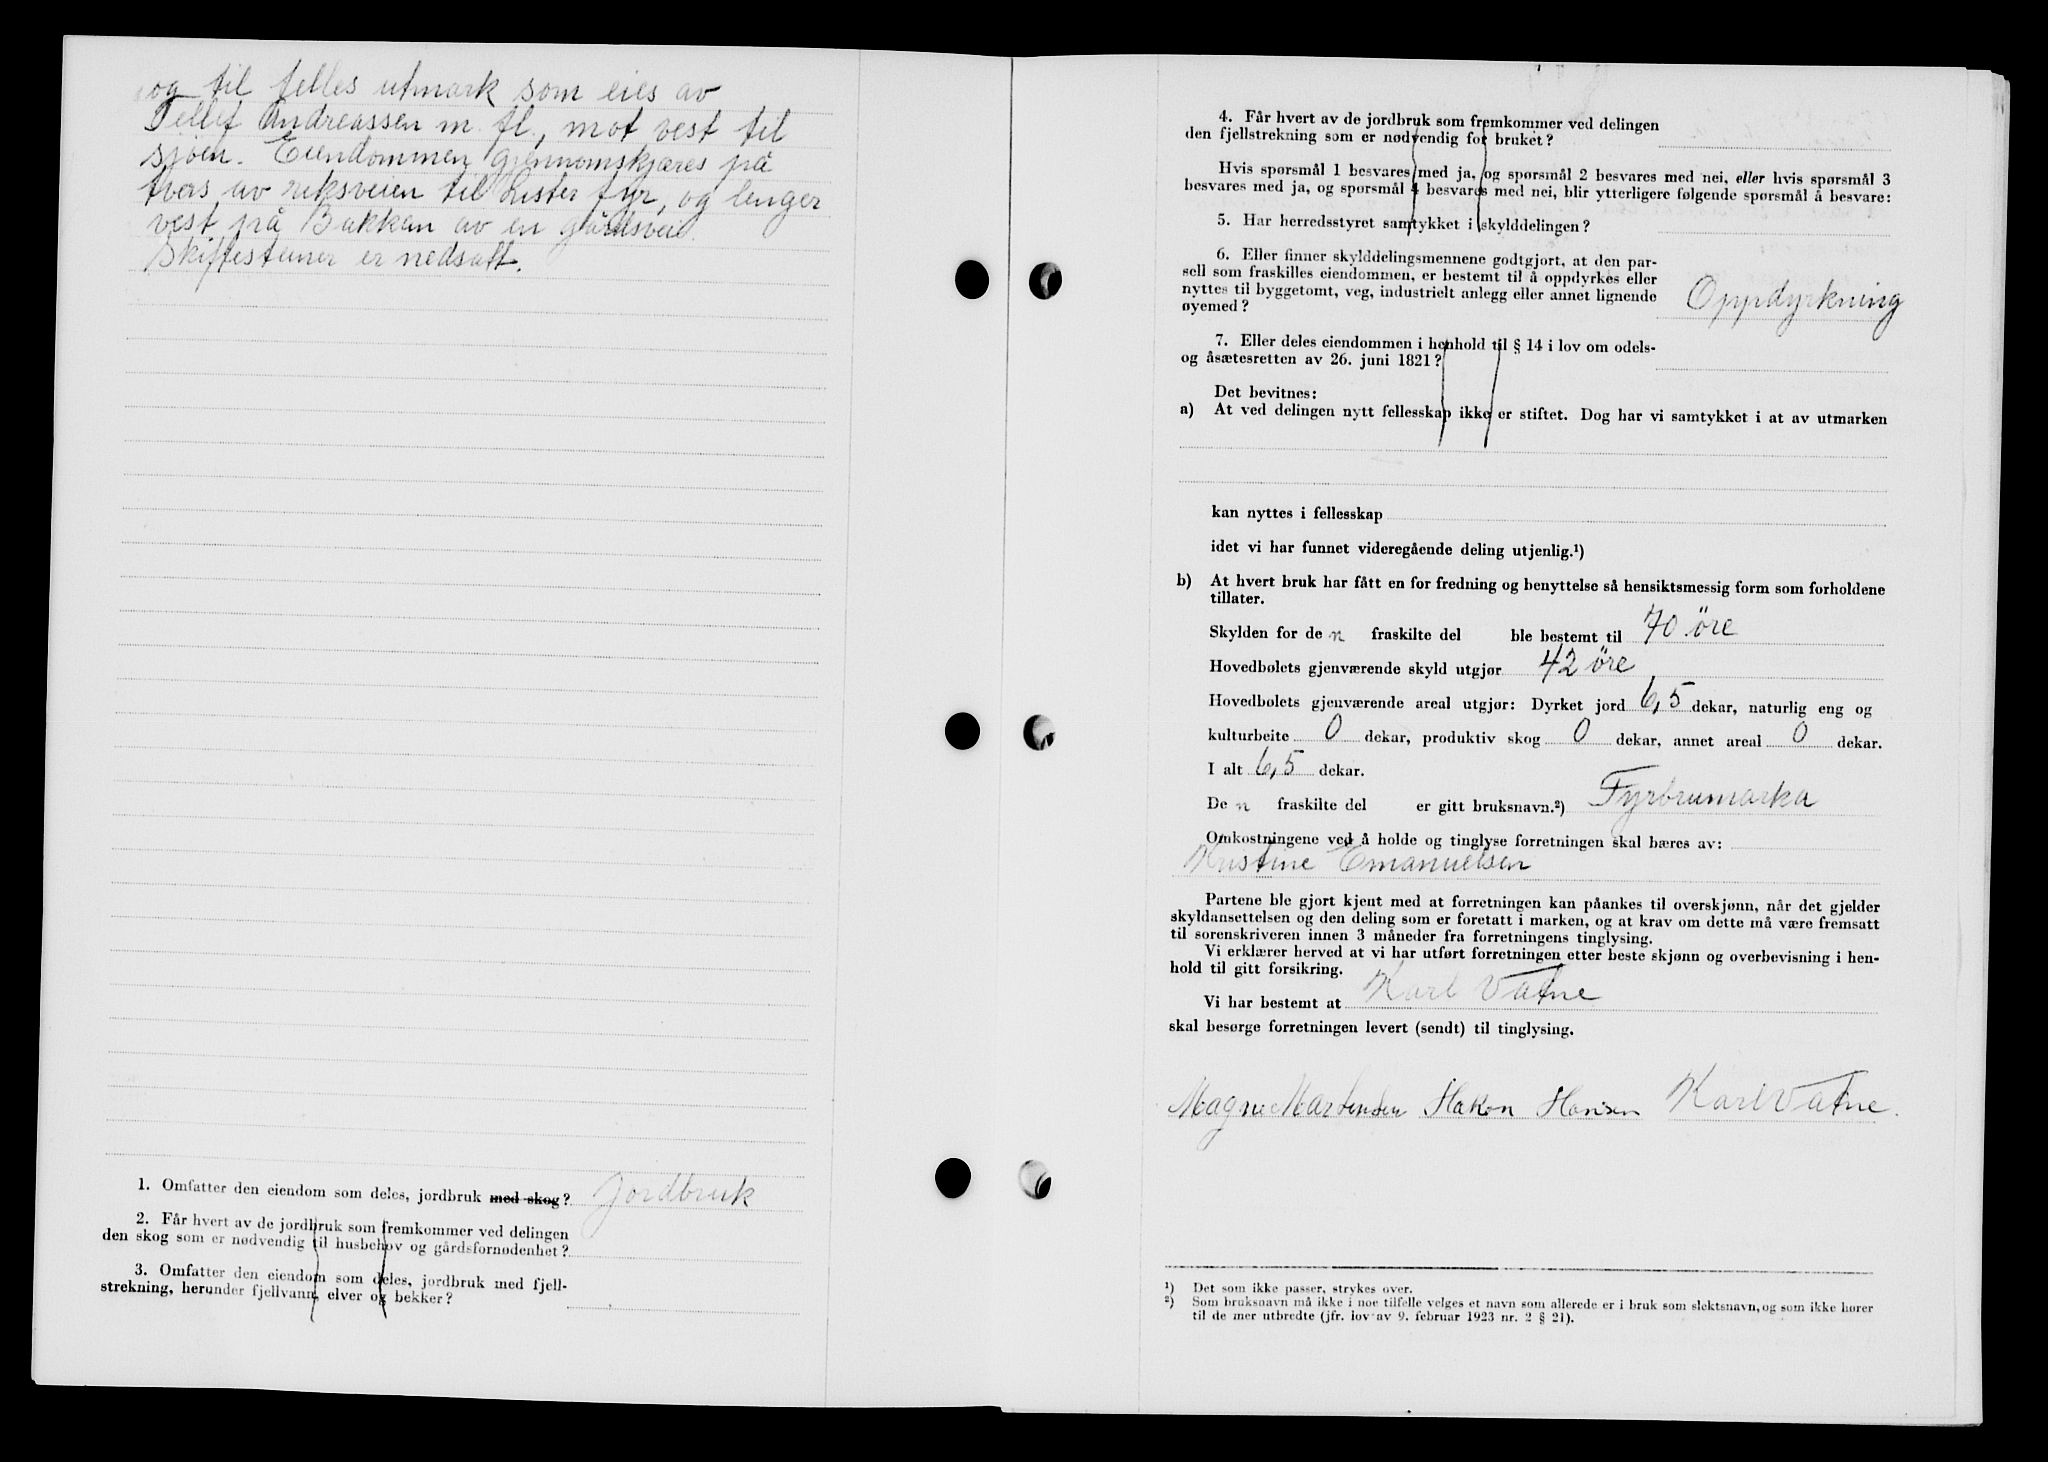 og til felles utmark som eies av
Tellef Andreassen m. fl., mot vest til
sjøen. Eiendommen gjennomskjæres på
tvers av riksveien til Lister fyr, og lenger
vest på Bakkan av en gårdsvei.
Skiftesteiner er nedsatt.
1. Omfatter den eiendom som deles, jordbruk med skog? Jordbruk
2. Får hvert av de jordbruk som fremkommer ved delingen
den skog som er nødvendig til husbehov og gårdsfornødenhet?
3. Omfatter den eiendom som deles, jordbruk med fjell-
strekning, herunder fjellvann, elver og bekker?
4. Får hvert av de jordbruk som fremkommer ved delingen
den fjellstrekning som er nødvendig for bruket?
Hvis spørsmål 1 besvares med ja, og spørsmål 2 besvares med nei, eller hvis spørsmål 3
besvares med ja, og spørsmål 4 besvares med nei, blir ytterligere følgende spørsmål å besvare:
5. Har herredsstyret samtykket i skylddelingen?
6. Eller finner skylddelingsmennene godtgjort, at den par-
sell som fraskilles eiendommen, er bestemt til å oppdyrkes eller
nyttes til byggetomt, veg, industrielt anlegg eller annet lignende
øyemed? Oppdyrkning
7. Eller deles eiendommen i henhold til § 14 i lov om odels-
og åsætesretten av 26. juni 1821?
Det bevitnes:
a) At ved delingen nytt fellesskap ikke er stiftet. Dog har vi samtykket i at av utmarken
kan nyttes i fellesskap
idet vi har funnet videregående deling utjenlig.¹)
b) At hvert bruk har fått en for fredning og benyttelse så hensiktsmessig form som forholdene
tillater.
Skylden for de n fraskilte del ble bestemt til 70 øre
Hovedbølets gjenværende skyld utgjør 42 øre
Hovedbølets gjenværende areal utgjør: Dyrket jord 6,5 dekar, naturlig eng og
kulturbeite 0 dekar, produktiv skog 0 dekar, annet areal 0 dekar.
I alt 6,5 dekar.
De n fraskilte del er gitt bruksnavn.²) Fyrbrumarka
Omkostningene ved å holde og tinglyse forretningen skal bæres av:
Kristine Emanuelsen
Partene ble gjort kjent med at forretningen kan påankes til overskjønn, når det gjelder
skyldansettelsen og den deling som er foretatt i marken, og at krav om dette må være fremsatt
til sorenskriveren innen 3 måneder fra forretningens tinglysing.
Vi erklærer herved at vi har utført forretningen etter beste skjønn og overbevisning i hen-
hold til gitt forsikring.
Vi har bestemt at Karl Vatne
skal besørge forretningen levert (sendt) til tinglysing.
Magne Martensen Håkon Hansen Karl Vatne.
¹) Det som ikke passer, strykes over.
²) Som bruksnavn må ikke i noe tilfelle velges et navn som allerede er i bruk som slektsnavn, og som ikke hører
til de mer utbredte (jfr. lov av 9. februar 1923 nr. 2 § 21).